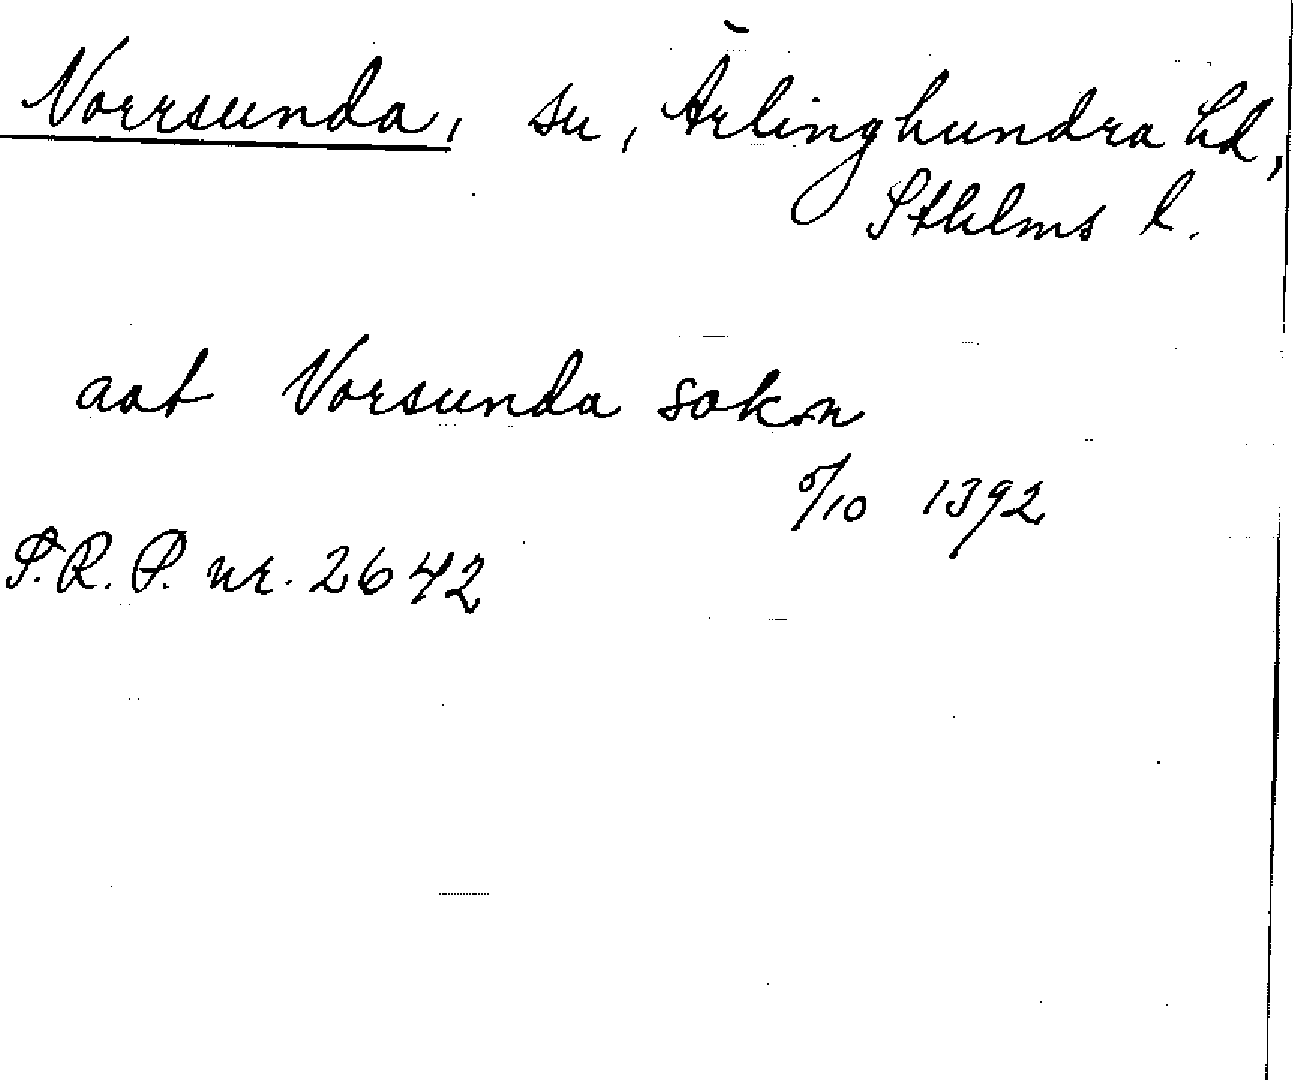 Norrsunda, sn, Ärlinghundra hd,
Sthlms l.
aat Norsunda sokn
5/10 1392
S.R.P. nr. 2642